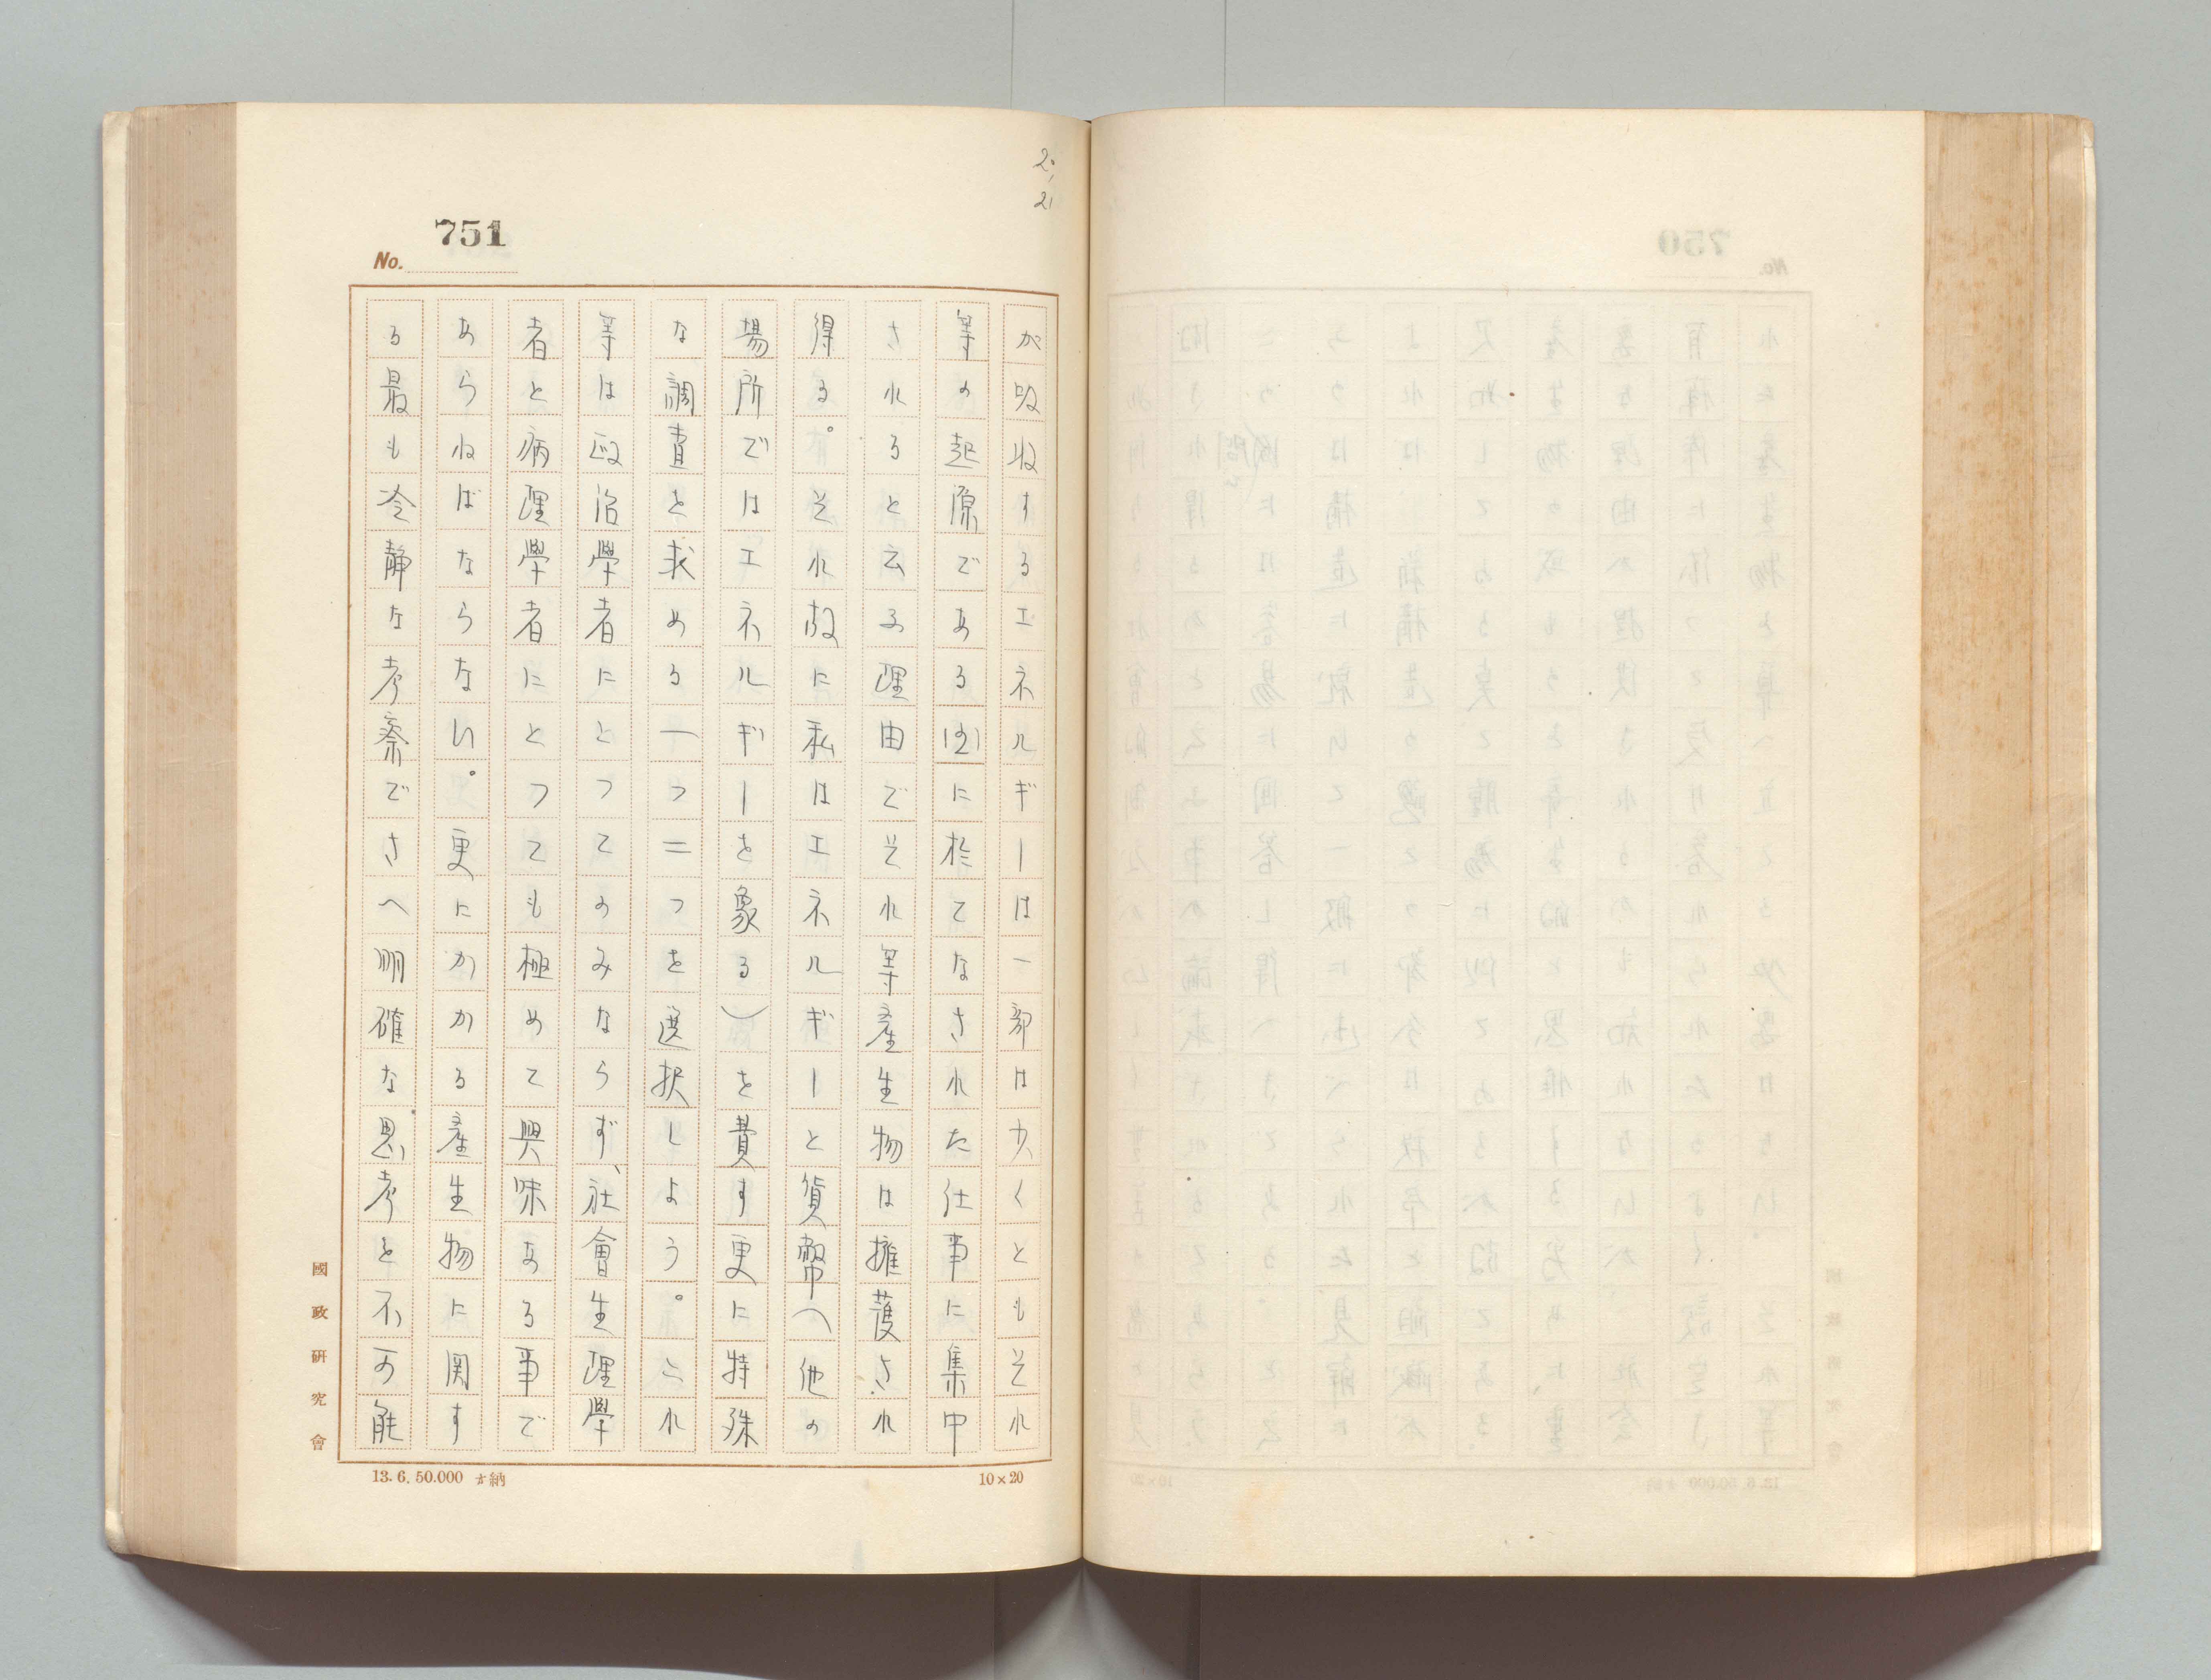 20,
21
751
No.
が吸收するエネルギーは一部は少くともそれ
等の起原である国に於てなされた仕事に集中
されると云ふ理由でそれ等産生物は擁護され
得る。それ故に私はエネルギーと貨幣(他の
場所ではエネルギーを象る)を費す更に特殊
な調査を求める一つ二つを選択しよう。これ
等は政治學者にとつてのみならず、社會生理學
者と病理學者にとつても極めて興味ある事で
あらねばならない。更にかかる産生物に関す
る最も冷靜な考察でさへ明確な思考を不可能
國政研究會
13.6.50.000 納
10×20